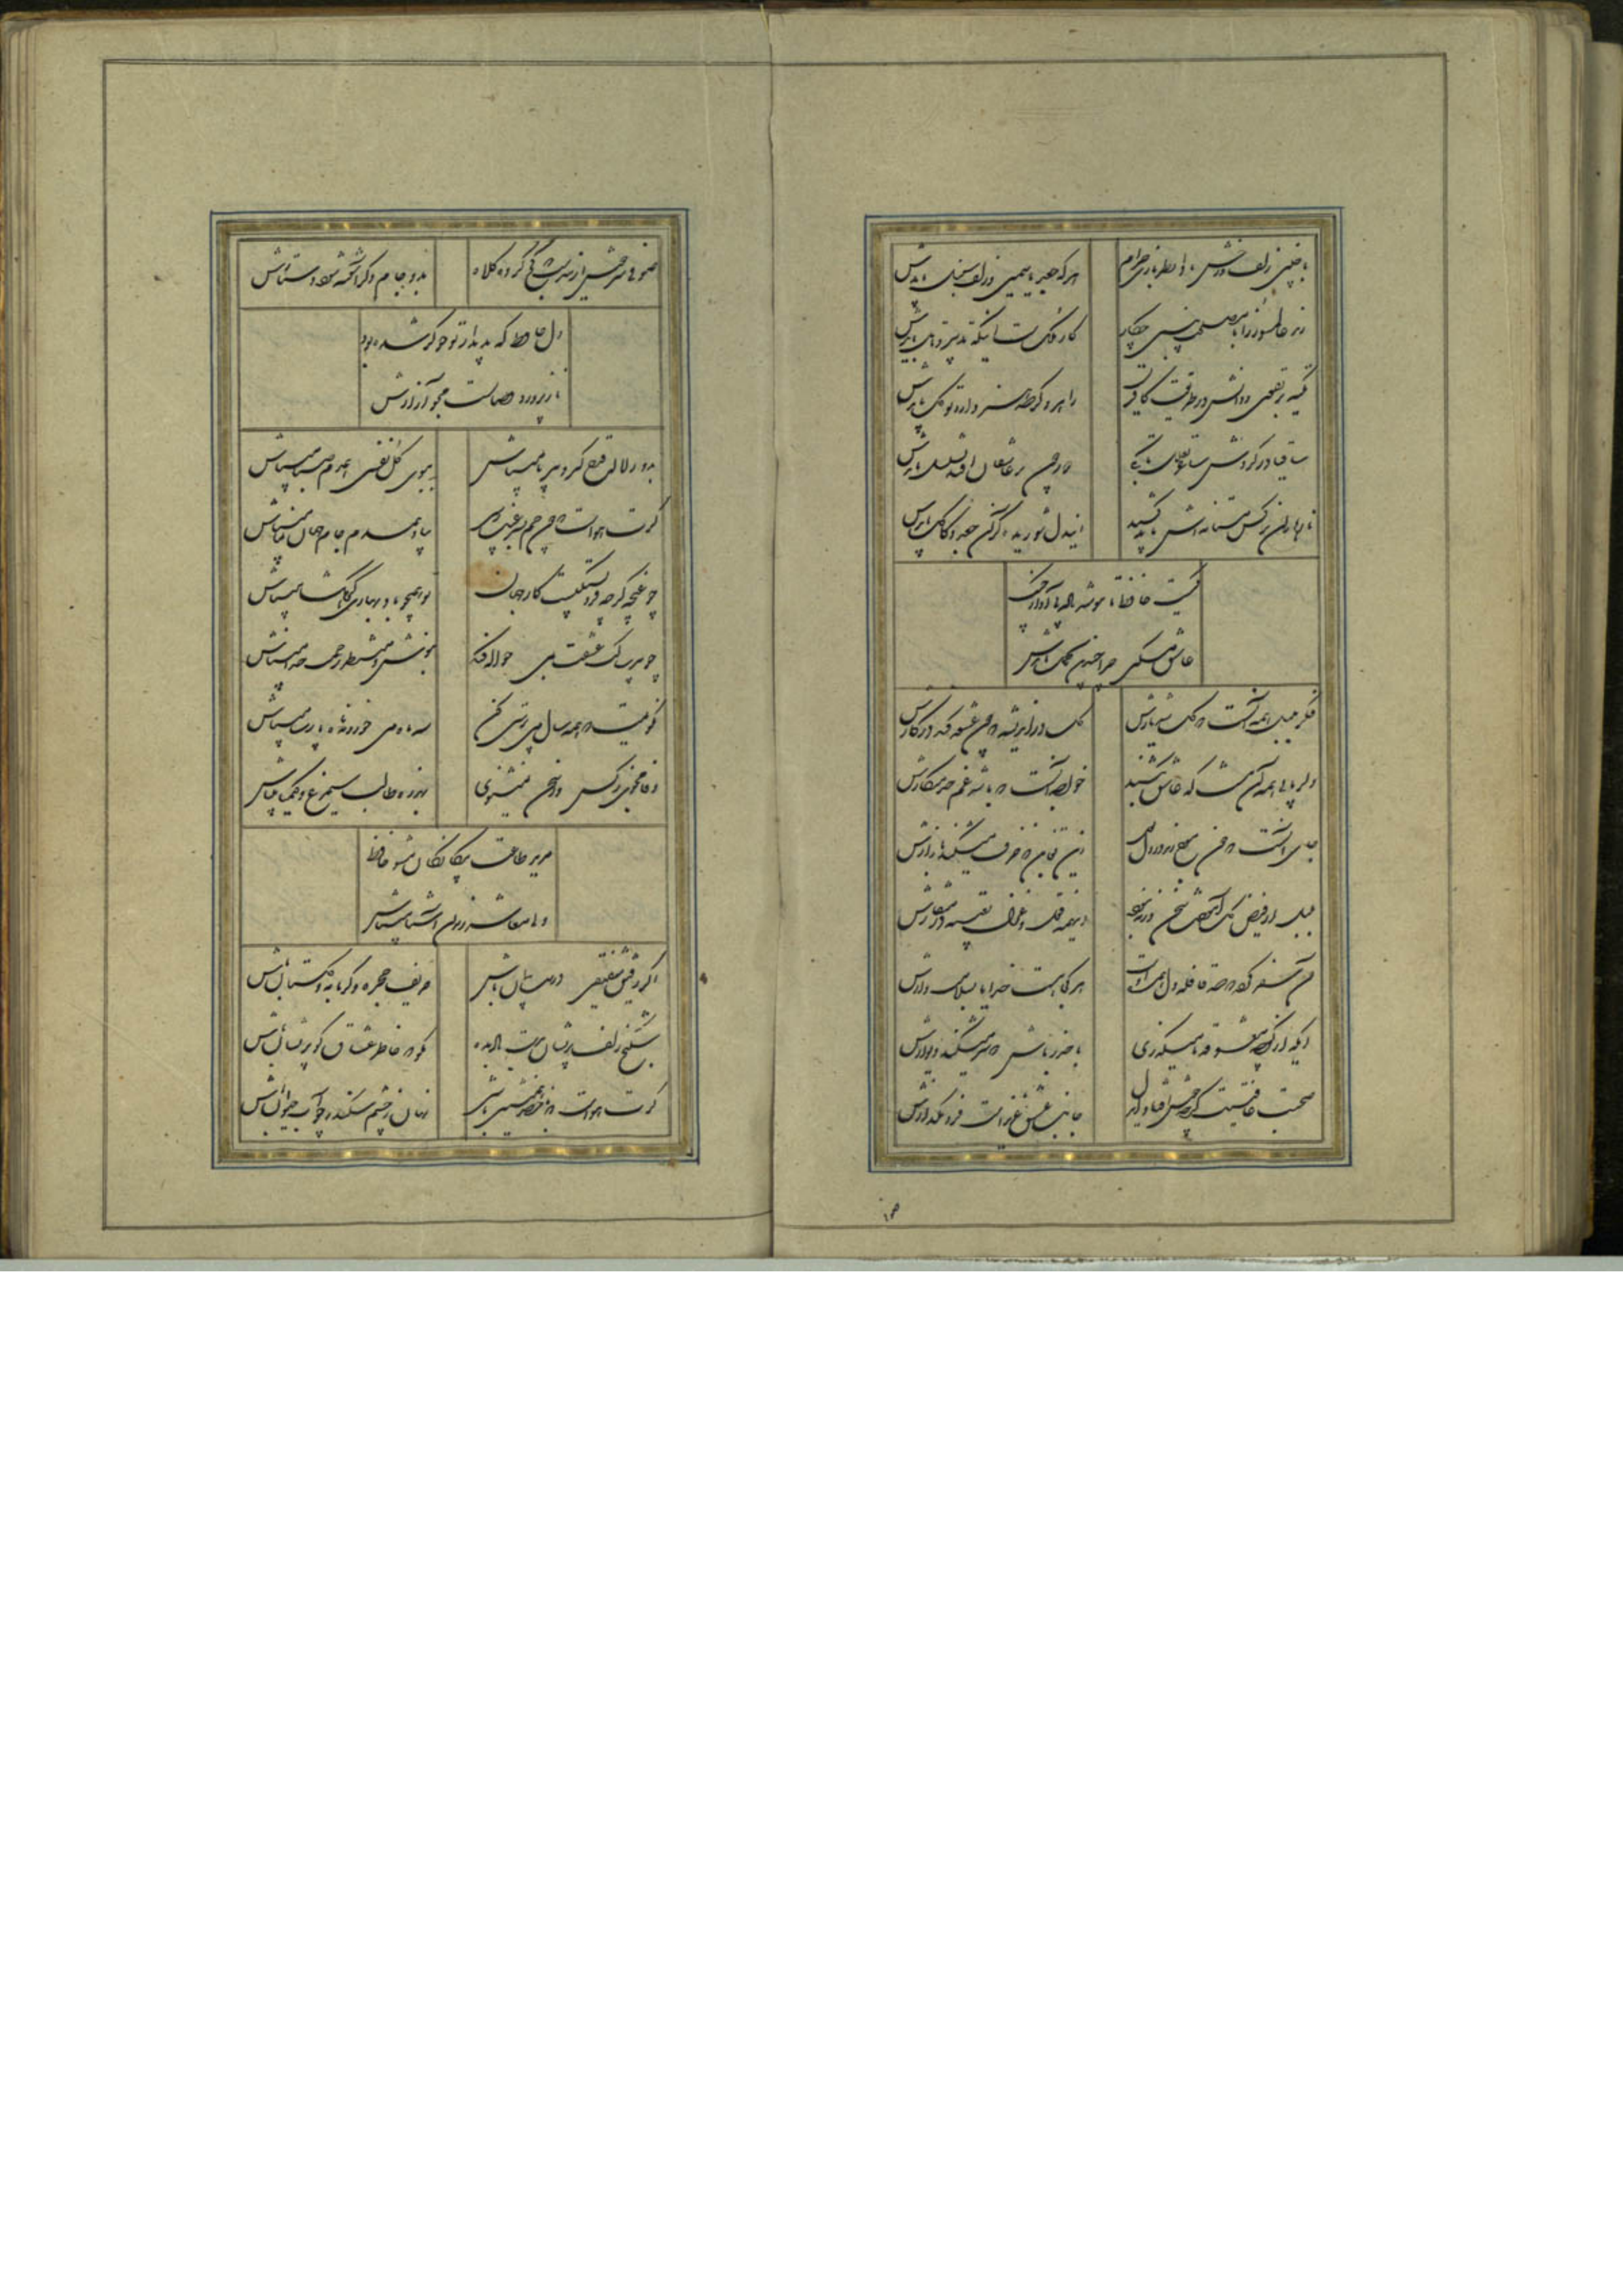 با چنین زلف و رخش بادا نظربازی حرام
هر که جعد یاسمین و زلف سنبل بایدش
رند عالم سوز را با مصلحت بینی چکار
کار ملکست آنکه تدبیر و تامل بایدش
تکیه بر تقوی و دانش در طریقت کافریست
راهرو گر صد هنر دارد توکل بایدش
ساقیا در گردش ساغر تعلل تا بکی
دور چون بر عاشقان افتد تسلسل بایدش
نازها زان نرگس مستانه اش باید کشید
ایندل شوریده گر آن جعد و کاکل بایدش
کیست حافظ تا ننوشد باده بی آواز چنگ
عاشق مسکین چرا چندین تجمل بایدش
فکر بلبل همه آنست که گل شد یارش
گل در اندیشه که چون عشوه کند در کارش
دلربایی همه آن نیست که عاشق بکشند
خواجه آنست که باشد غم خدمتکارش
جای آنست که خون موج زند در دل لعل
زین تغابن که خزف میشکند بازارش
بلبل از فیض گل آموخت سخن ورنه نبود
اینهمه قول و غزل تعبیه در منقارش
آن سفرکرده که صد قافله دل همره اوست
هر کجا هست خدایا بسلامت دارش
ایکه از کوچه معشوقه ما میگذری
با خبر باش که سر میشکند دیوارش
صحبت عافیتت گرچه خوش افتاد ایدل
جانب عشق عزیز است فرومگذارش
صوفی سرخوش ازین دست که کج کرد کلاه
بدو جام دگر آشفته شود دستارش
دل حافظ که بدیدار تو خوگر شده بود
نازپرورد وصالست مجو آزارش
بدور لاله قدح گیر و بی ریا میباش
ببوی گل نفسی همدم صبا میباش
گرت هواست که چون جم بسر غیب رسی
بیا و همدم جام جهان نما میباش
چو غنچه گرچه فروبستگیست کار جهان
تو همچو باد بهاری گره گشا میباش
چو پیر سالک عشقت بمی حواله کند
بنوش و منتظر رحمت خدا میباش
نگویمت که همه سال می پرستی کن
سه ماه می خور و نه ماه پارسا میباش
وفا مجوی ز کس ور سخن نمیشنوی
بهرزه طالب سیمرغ و کیمیا میباش
مرید طاعت بیگانگان مشو حافظ
ولی معاشر رندان آشنا میباش
اگر رفیق شفیقی درست پیمان باش
حریف حجره و گرمابه و گلستان باش
شکنج زلف پریشان بدست باد مده
مگو که خاطر عشاق گو پریشان باش
گرت هواست که با خضر همنشین باشی
نهان ز چشم سکندر چو آب حیوان باش